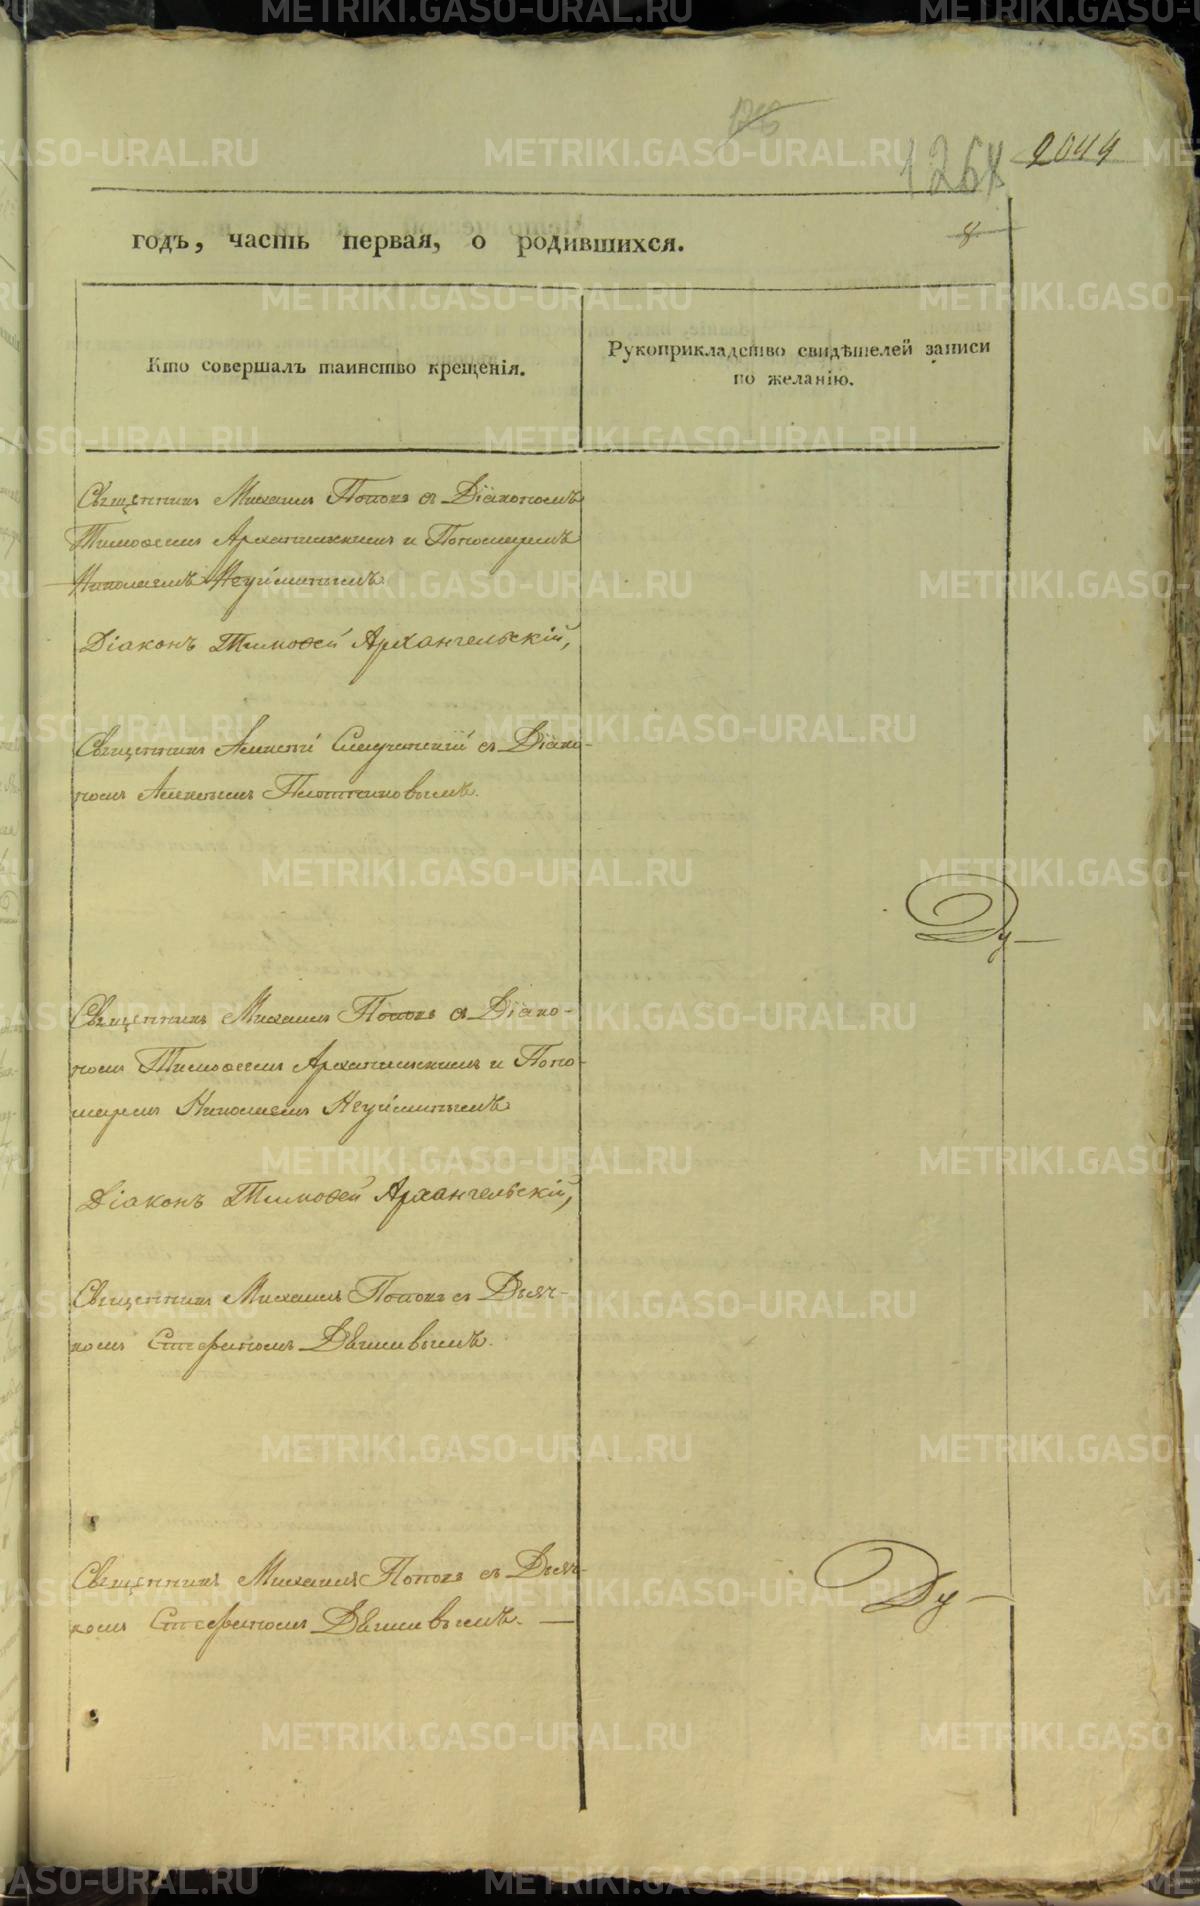 1268
2044
8
годъ, часть первая, о родившихся.
Кто совершалъ таинство крещенія.
Рукоприкладство свидѣтелей записи
по желанію.
Священникъ Михаилъ Поповъ съ Діакономъ
Тимофеемъ Архангельскимъ и Пономаремъ
Николаемъ Неуйминымъ
Діаконъ Тимофей Архангельскій,
Священникъ Алексѣй съ Діако-
номъ Плотниковымъ.
Ду
Священникъ Михаилъ Поповъ съ Діако-
номъ Тимофеемъ Архангельскимъ и Поно-
маремъ Николаемъ Неуйминымъ
Діаконъ Тимофей Архангельскій,
Священникъ Михаилъ Поповъ съ Дьяч-
комъ Стефаномъ
Священникъ Михаилъ Поповъ съ Дьяч-
комъ Стефаномъ
Ду
METRIKI.GASO-URAL.RU